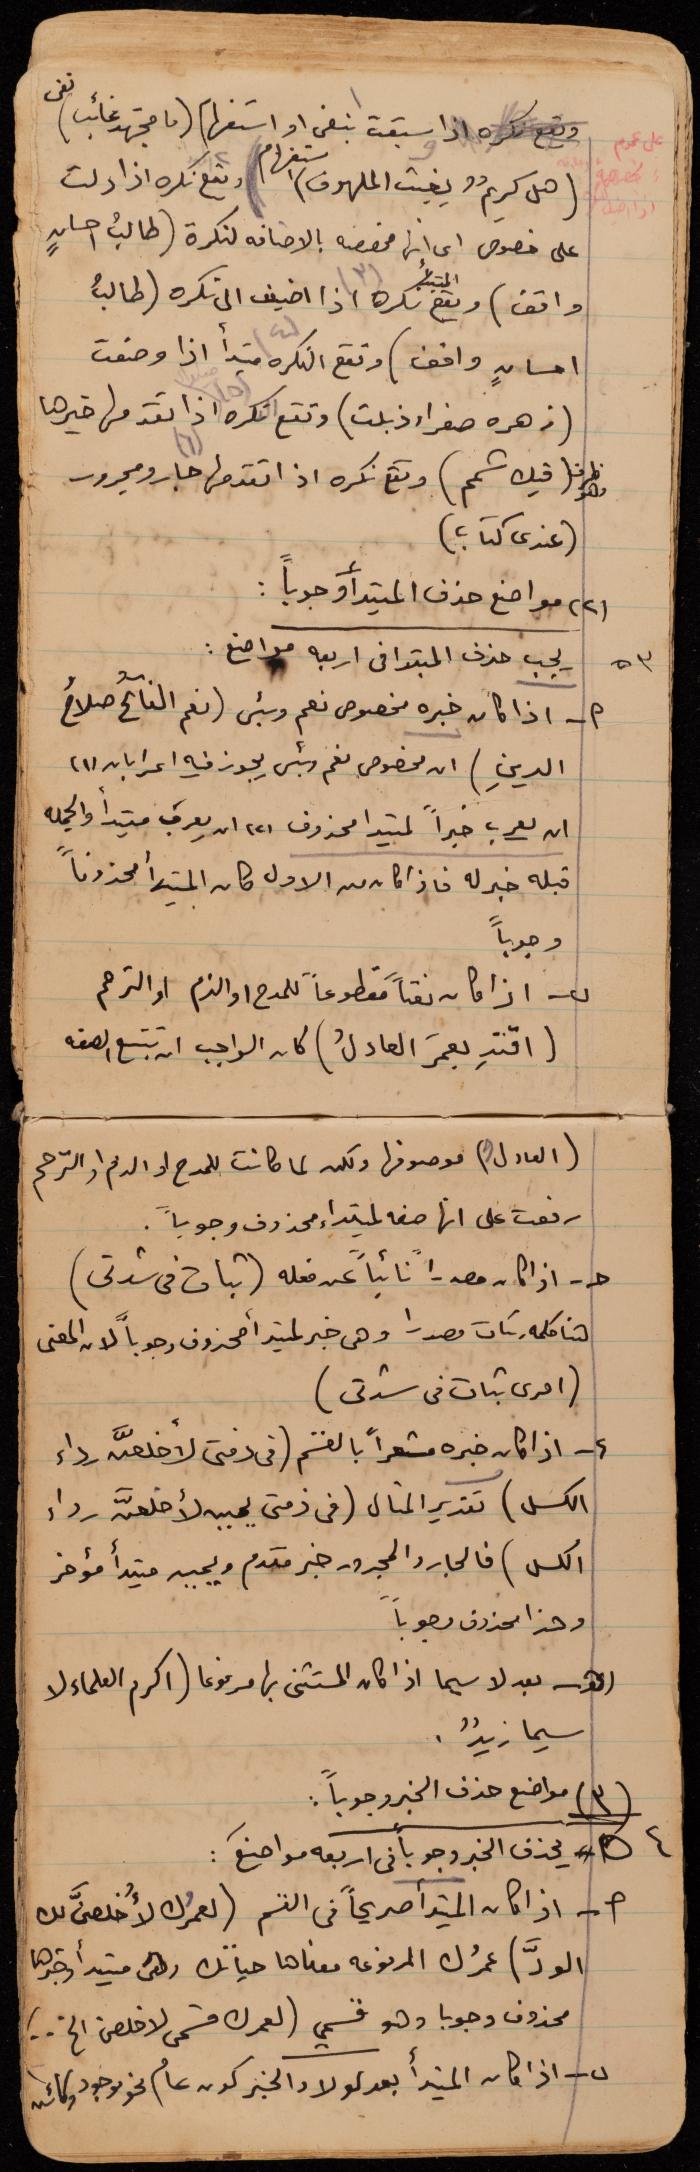 وتقع نكره اذا سبقت بنفي او استفهام (ما مجتهد غائب) نفي
(هل كريمٌ يغيث الملهوف) استفهام وتقع نكره اذا دلت
على خصوص اى انها مخصصه بالاضافه لنكرة (طالبُ احسانٍ
واقف) وتقع المبتدأ نكره (٣) اذا اضيف الى نكره (طالبُ
احسانٍ واقف) وتقع النكره مبتدأ (٤) اذا وصفت
(زهره صفراء ذبلت) وتقع النكره (٥) اذا تقدمها خبرها
وهو ظرف (فيك شمم) وتقع نكره (٦) اذا تقدمها جار ومجرور
(عندى كتاب)
(٢) مواضع حذف المبتدأ وجوباً :
٣٥ يجب حذف المبتدا فى اربعه مواضع :
٢ــ اذا كان خبره مخصوص نعم وبئس (نعم الفاتحُ صلاحُ
الدينِ) ان مخصوص نعم وبئس يجوز فيه اعرابان (١)
ان يعرب خبراً لمبتدا محذوف (٢) ان يعرب مبتدأ والجمله
قبله خبر له فاذا كان من الاول كان المبتدأ محذوفاً
وجوباً
ب ــ اذا كان نعتاً مقطوعاً للمدح او الذم او الترحم
(اقتدِ بعمرَ العادلُ) كان الواجب ان تتبع الصفه
(العادل) موصوفها ولكن لما كانت للمدح او الذم او الترحم
رفعت على انها صفه لمبتداء محذوف وجوباً .
حـ ــ اذا كان مصدراً نائباً عن فعله (ثبات فى شدتى)
هنا كلمه ثبات مصدرا وهى خبر لمبتدأ محذوف وجوباً لان المعنى
(امرى ثبات فى شدتى)
ء ــ اذا كان خبره مشعراً بالقسم (فى ذمتى لأخلعنَّ رداء
الكسل) تقدير المثال (فى ذمتى يمين لأخلعنَّ رداء
الكسل) فالجار والمجرور خبر مقدم ويمين مبتدأ مؤخر
وهذا محذوف وجوباً
هـ ــ بعد لا سيما اذا كان المستثنى بها مرفوعا (اكرم العلماء لا
سيما زيدٌ .
(٣) مواضع حذف الخبر وجوباً :
٤ يحذف الخبر وجوباً فى اربعه مواضع :
٢ــ اذا كان المبتدأ صريحاً فى القسم (لعمرُك لأُخلصنَّ لك
الودَّ) عمرُك المرفوعه معناها حياتك وهى مبتدأ وخبرها
محذوف وجوبا وهو قسمي (لعمرك قسمى لاخلصن الخ ..)
ب ــ اذا كان المبتدأ بعد لولا والخبر كون عام نحو موجود وكائن